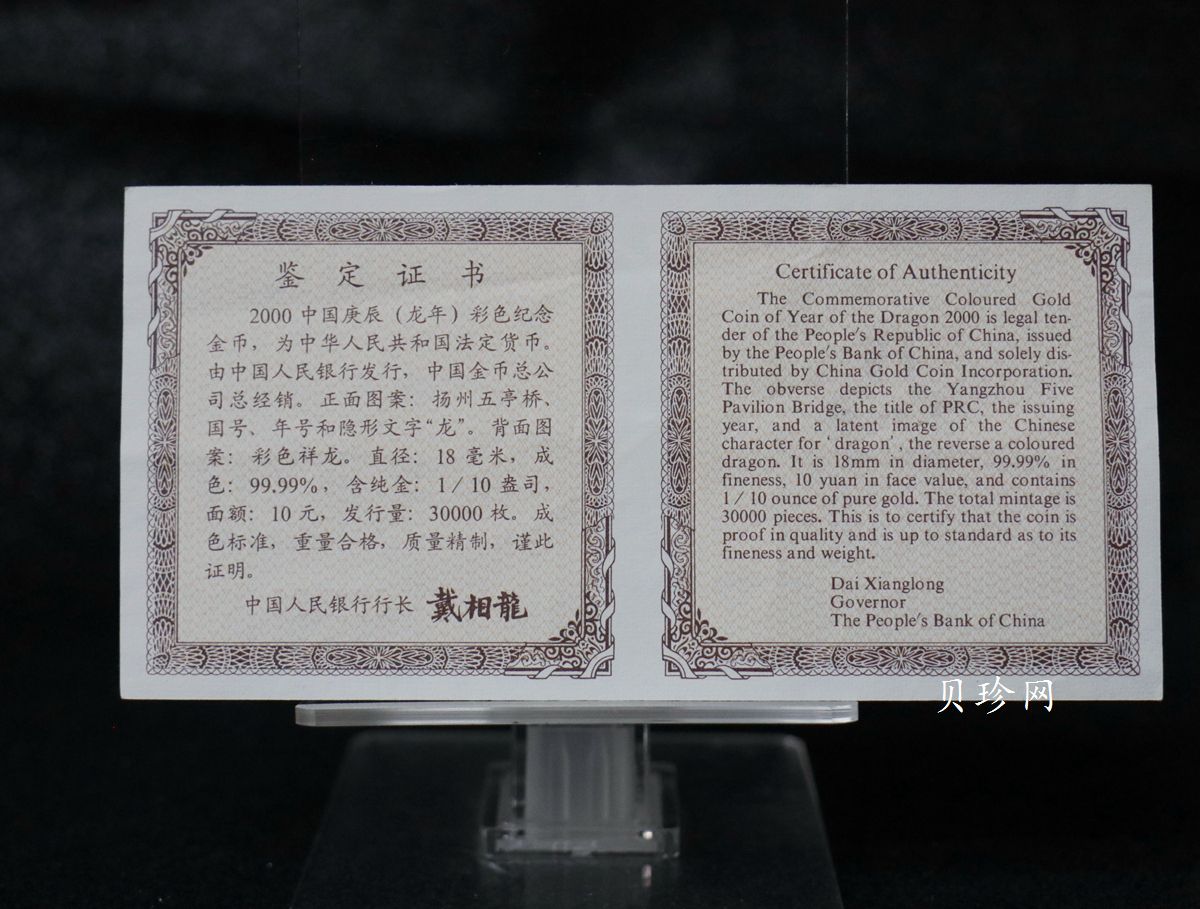 鉴定证书
2000 中国庚辰（龙年）彩色纪念
金币，为中华人民共和国法定货币。
由中国人民银行发行，中国金币总公
司总经销。正面图案：扬州五亭桥、
国号、年号和隐形文字“龙”。背面图
案：彩色祥龙。直径：18 毫米，成
色：99.99%，含纯金：1／10 盎司，
面额：10 元，发行量：30000 枚。成
色标准，重量合格，质量精制，谨此
证明。
中国人民银行行长 戴相龍
Certificate of Authenticity
The Commemorative Coloured Gold
Coin of Year of the Dragon 2000 is legal ten-
der of the People's Republic of China, issued
by the People's Bank of China, and solely dis-
tributed by China Gold Coin Incorporation.
The obverse depicts the Yangzhou Five
Pavilion Bridge, the title of PRC, the issuing
year, and a latent image of the Chinese
character for ‘dragon’, the reverse a coloured
dragon. It is 18mm in diameter, 99.99% in
fineness, 10 yuan in face value, and contains
1／10 ounce of pure gold. The total mintage is
30000 pieces. This is to certify that the coin is
proof in quality and is up to standard as to its
fineness and weight.
Dai Xianglong
Governor
The People's Bank of China
贝珍网